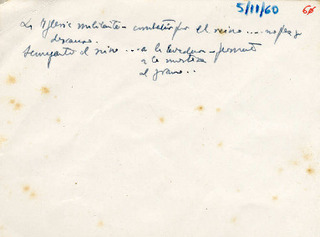 5/11/60
La Iglesia militante - combatir por el reino .... no paz y
descanso.
Semejante el reino ... a la levadura - fermento
a la mostaza
al grano ..